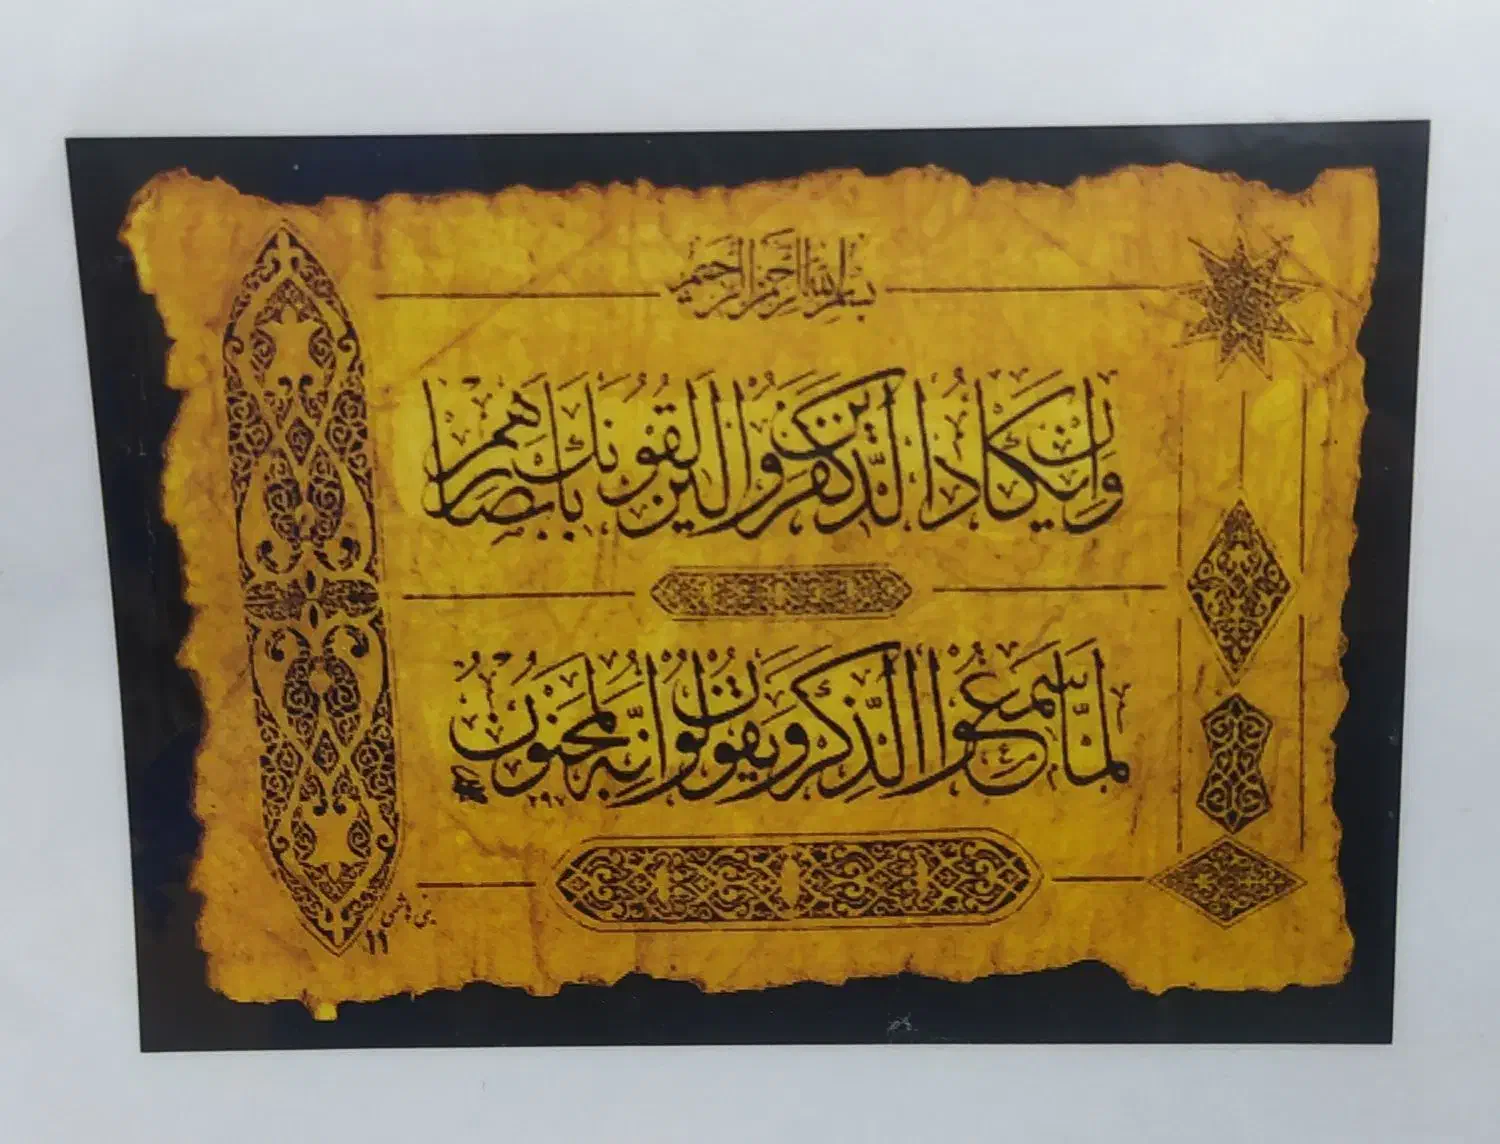 بسم الله الرحمن الرحيم
وَإِن يَكَادُ الَّذِينَ كَفَرُوا لَيُزْلِقُونَكَ بِأَبْصَارِهِمْ
لَمَّا سَمِعُوا الذِّكْرَ وَيَقُولُونَ إِنَّهُ لَمَجْنُونٌ